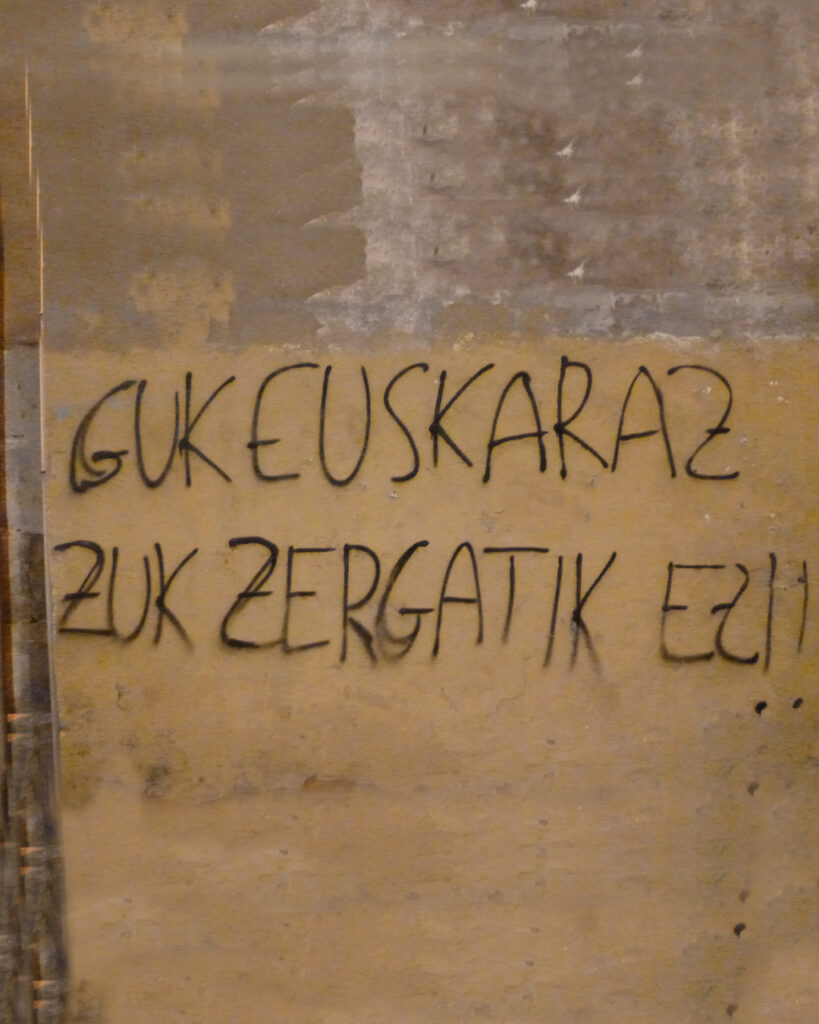 GUK EUSKARAZ
ZUK ZERGATIK EZ!!